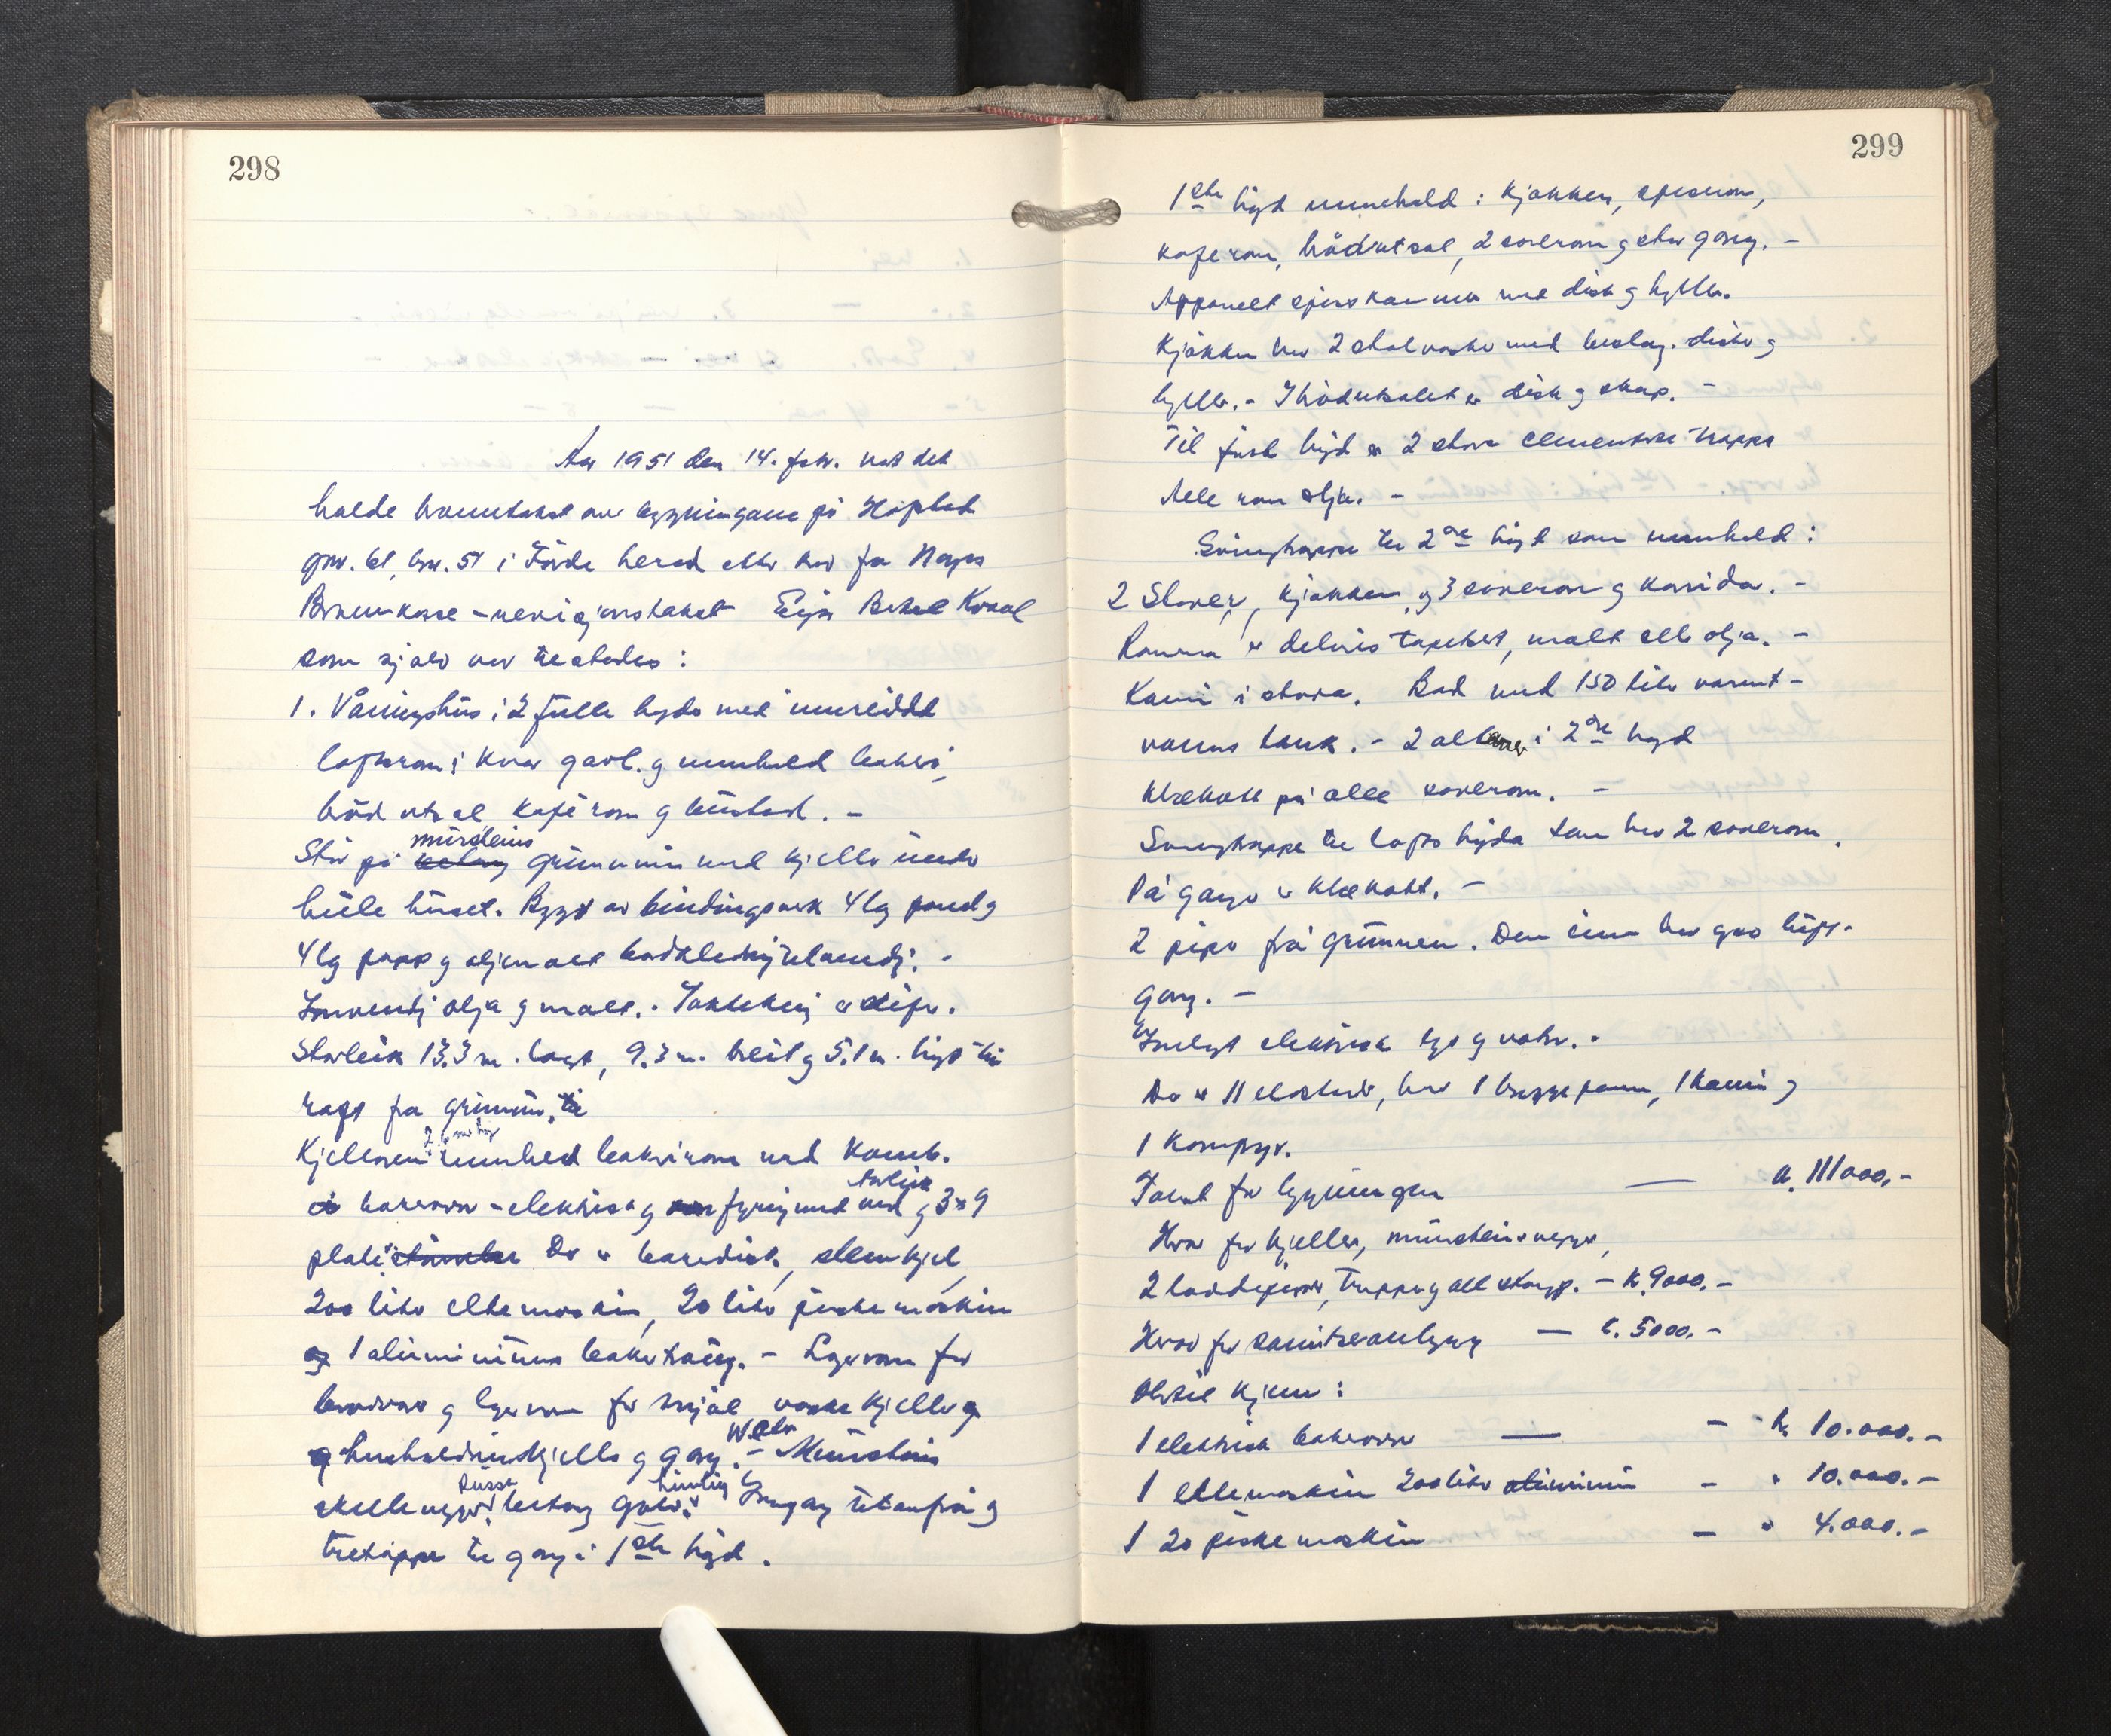 298
Aar 1951 den 14. febr. vart det
halde branntakst over bygningane på Haplad
gnr. 61, bnr. 51 i Förde herad etter krav fra Noregs
Brannkasse - revisjonstakst Eigar Kvaal
som sjølv var tilstades:
1. Våningshus i 2 fulle högder med innreidde
loftsrom i kvar gavl. og innheld bakeri,
brödutsal kaférom og bustad. -
Står på mursteins grunnmur med kjeller under
heile huset. Bygt av bindingsverk 4 lg panel og
4 lg papp og oljemalt bordkledning utvendig. -
Innvendig olja og malt. - Taktekking er skifer.
Storleik 13.3 m. langt, 9.3 m. breit og 5.1 m. högt til
raft fra grunnmur
Kjellaren innheld bakerirom med komb.
bakerovn - elektrisk og fyring med ved og 3 x 9
plater Der er bakedisk, steamkjel,
200 liter eltemaskin, 20 liter piskemaskin
og 1 aluminiums baketraug. - Lagerrom for
brödvarer og lagerrom for mjöl vaskekjeller og
husholdningskjeller og gang. - Murstein
skillevegger. pussa betong golv. Inngang utanfrå og
tretrapper til gang i 1ste högd.
299
1ste högd inneheld: Kjökken, spiserom,
kaferom, brödutsal, 2 soverom og stor gang. -
Apparelt spiskammer med disk og hyller.
Kjökken har 2 stålvaske med beslag. disker og
hyller. - I brödutsalet er disk og skap. -
Til först högd er 2 store cementerte trapper
Alle rom olja. -
Svingtrapper til 2dre högd som inneheld:
2 Stover, kjökken, og 3 soverom og korridor. -
Romma er delvis tapetsert, malt eller olja. -
Kamin i stova. Bad med 150 liter varmt-
vanns tank. - 2 altaner i 2dre högd
Klekott på alle soverom. -
Svingtrappe til lofts högda som har 2 soverom.
På gangen er klekott. -
2 piper frå grunnen. Den eine har god
gang. -
Innlagt elektrisk lys og vatn. -
Der er 11 eldsteder, herav 1 bryggepanne, 1 kamin og
1 Komfyr.
Takst for bygningen — kr. 111000,-
Herav for kjeller, mursteinsvegger,
2 trapper og all - kr. 9000.-
Herav for sanitæranlegg — kr. 5000.-
Attåt kjem:
1 elektrisk bakerovn — - kr. 10.000.-
1 eltemaskin 200 liter aluminium - " 10.000.-
1 20 piskemaskin - " 4.000.-